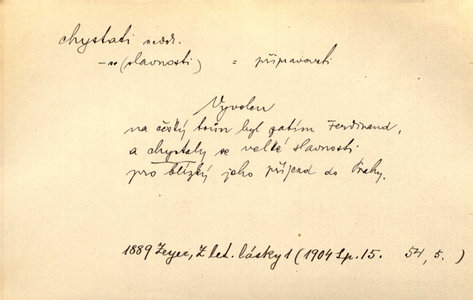 chystati nedok.
–se (slavnosti) = připravovati
Vyvolen
na český trůn byl zatím Ferdinand,
a chystaly se velké slavnosti
pro blízký jeho příjezd do Prahy.
1889 Zeyer, Z let. lásky 1 (1904 Sp. 15. 54, 5.)